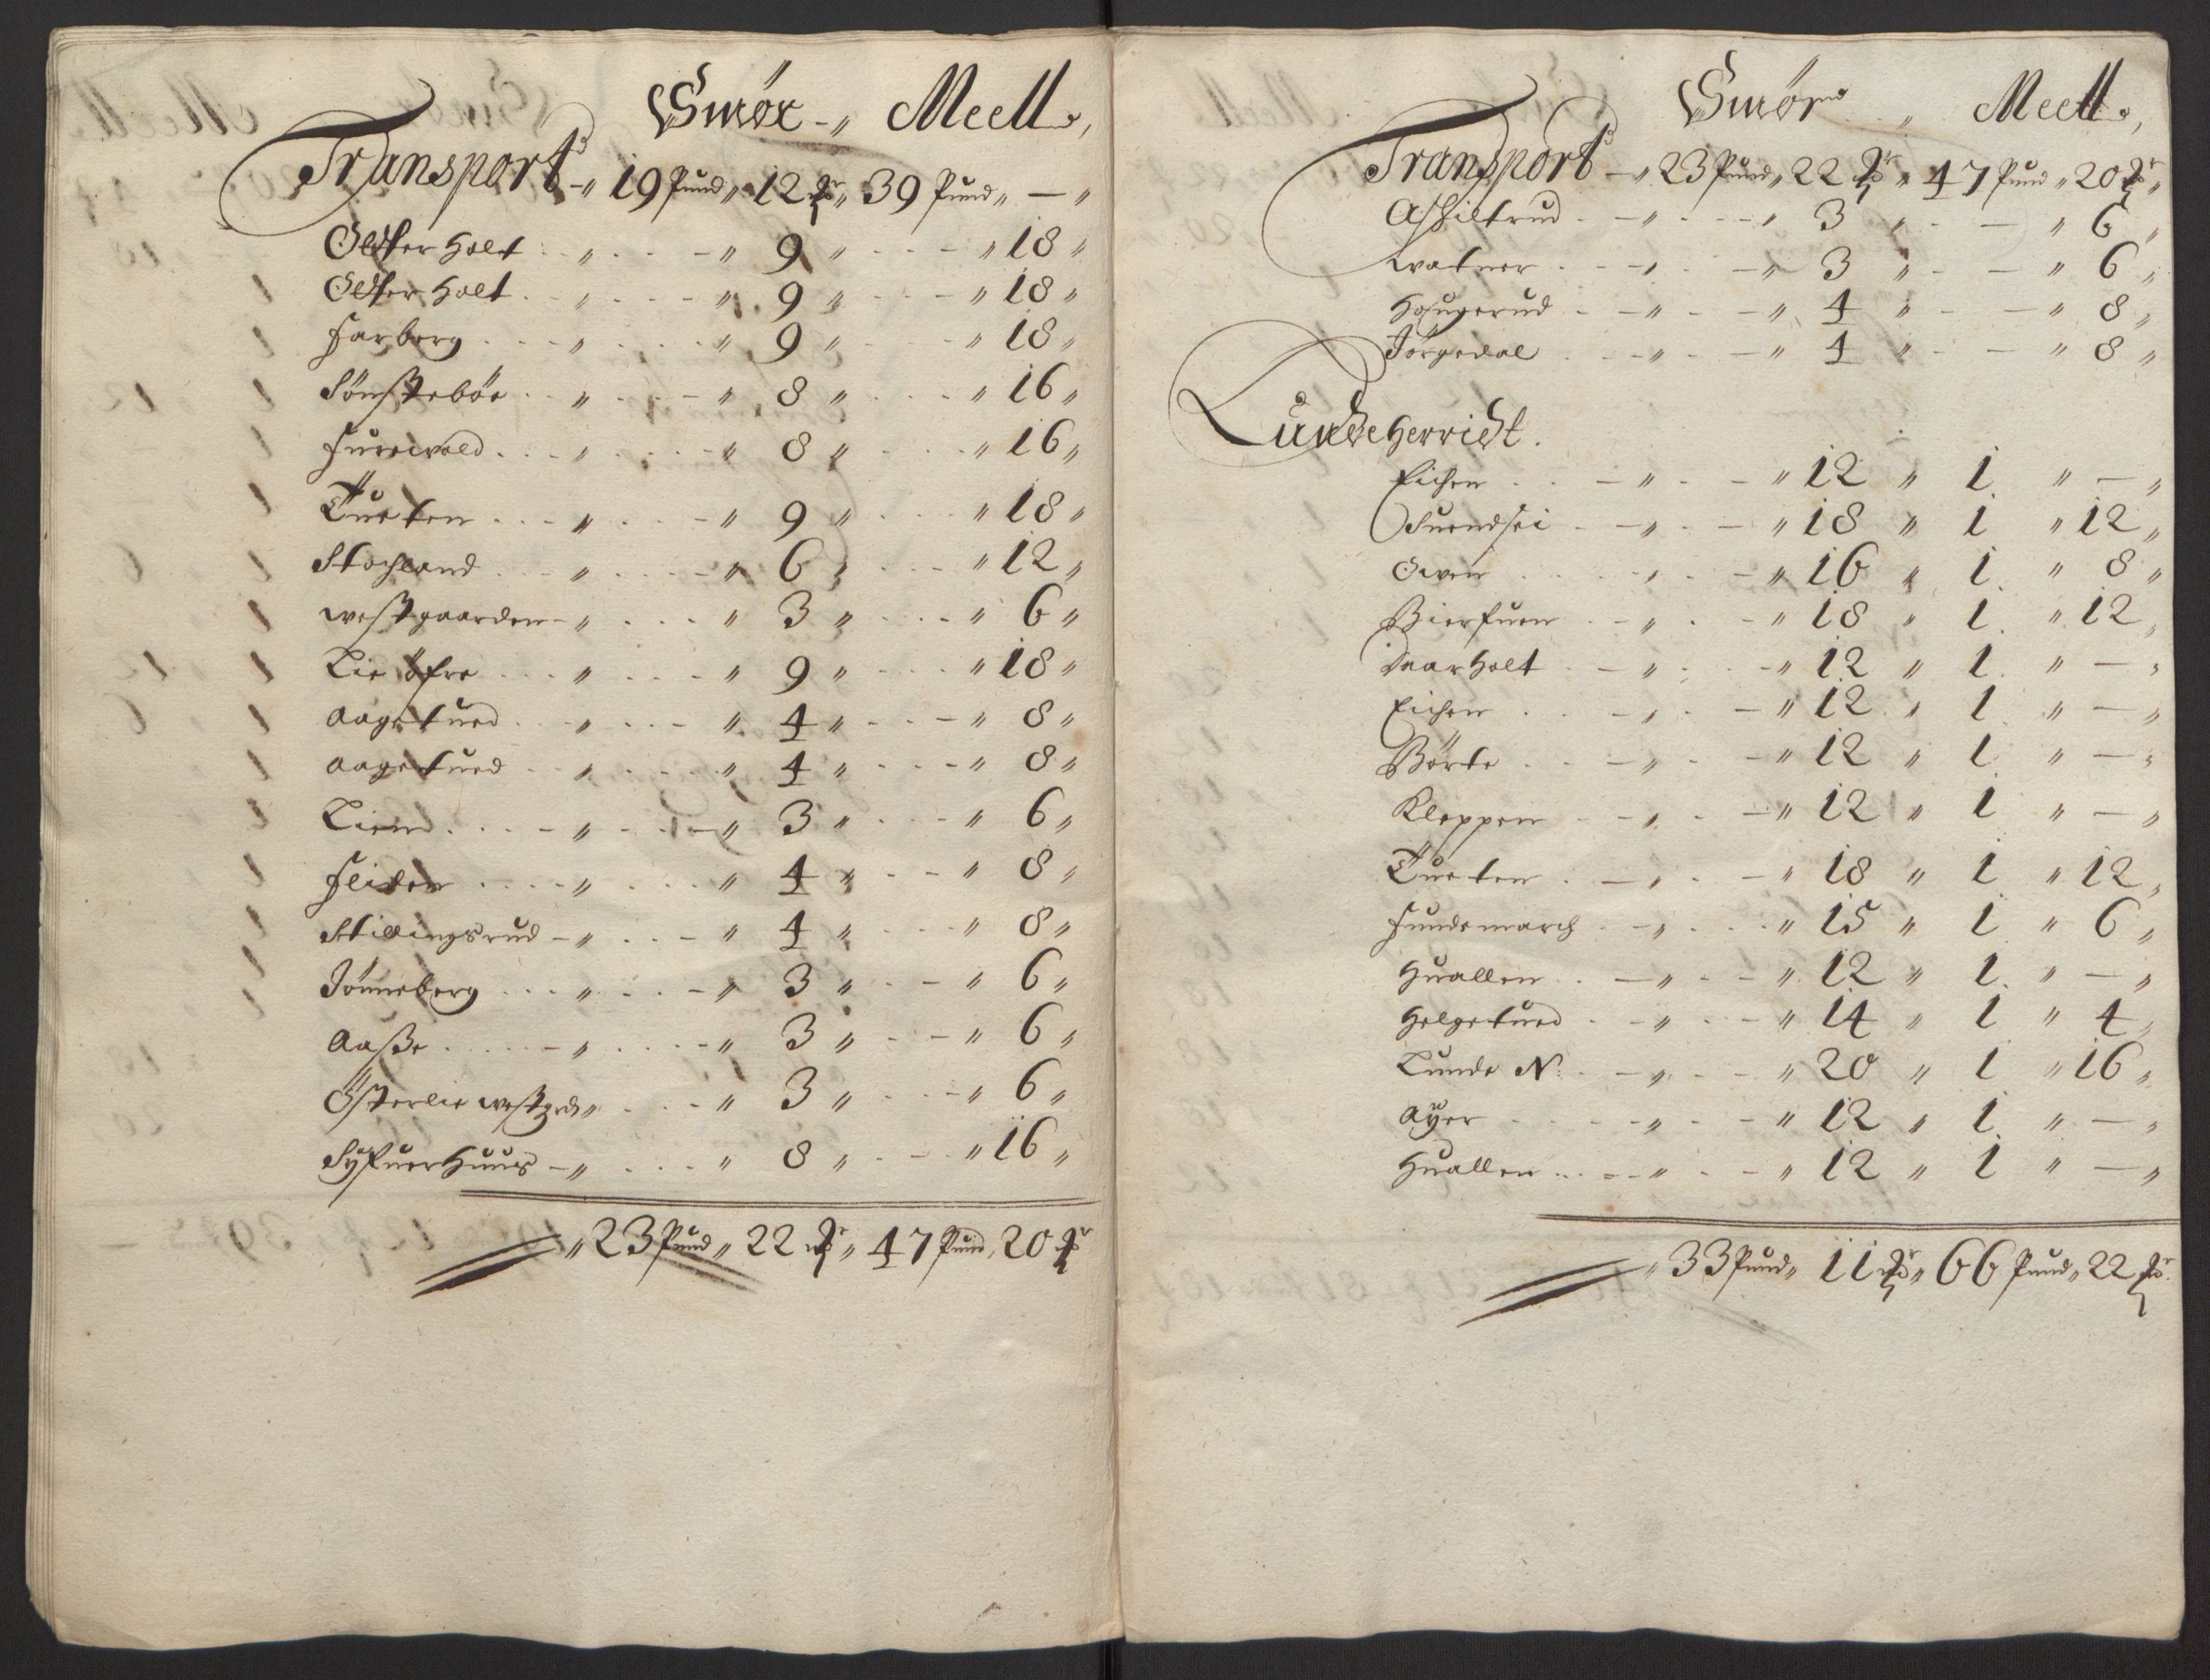 Smør „ Meell,
Transport „ 19 Pund „ 12 „ 39 Pund „ — „
Olsker Holt „ „ 9 „ „ 18 „
Olsker Holt „ „ 9 „ „ 18 „
Farberg „ „ 9 „ „ 18 „
Sönsteböe „ „ 8 „ „ 16 „
Furuvald „ „ 8 „ „ 16 „
Tueten „ „ 9 „ „ 18 „
Stochland „ „ 6 „ „ 12 „
westgaarden „ „ 3 „ „ 6 „
Lie öfre „ „ 9 „ „ 18 „
Aagetued „ „ 4 „ „ 8 „
Aagetued „ „ 4 „ „ 8 „
Liend „ „ 3 „ „ 6 „
„ „ 4 „ „ 8 „
Stillingsrud „ „ 4 „ „ 8 „
Jönneberg „ „ 3 „ „ 6 „
Aasse „ „ 3 „ „ 6 „
Österlie westgrd „ „ 3 „ „ 6 „
SyfuerHuus „ „ 8 „ „ 16 „
„ 23 Pund „ 22 „ 47 Pund „ 20
Smør „ Meell,
Transport „ 23 Pund „ 22 „ 47 Pund „ 20 „
Ashiltrud „ „ 3 „ „ 6 „
watner „ „ 3 „ „ 6 „
Hougerud „ „ 4 „ „ 8 „
Jörgedal „ „ 4 „ „ 8 „
Lunde Herridt.
Eichen „ „ 12 „ 1 „ — „
Suendsei „ „ 18 „ 1 „ 12 „
Owen „ „ 16 „ 1 „ 8 „
Bierfuen „ „ 18 „ 1 „ 12 „
VaarHolt „ „ 12 „ 1 „ — „
Eichen „ „ 12 „ 1 „ — „
Börte „ „ 12 „ 1 „ — „
Kleppen „ „ 12 „ 1 „ — „
Tueten „ „ 18 „ 1 „ 12 „
Fundemarch „ „ 15 „ 1 „ 6 „
Huallen „ „ 12 „ 1 „ — „
Helgetued „ „ 14 „ 1 „ 4 „
Lunde N: „ „ 20 „ 1 „ 16 „
Ayer „ „ 12 „ 1 „ — „
Huallen „ „ 12 „ 1 „ — „
„ 33 Pund „ 11 „ 66 Pund „ 22